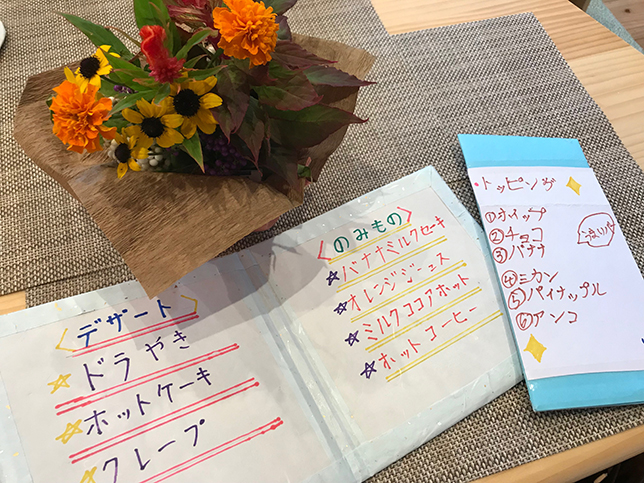 <デザート>
☆ドラやき
☆ホットケーキ
☆クレープ
<のみもの>
☆バナナミルクセーキ
☆オレンジジュース
☆ミルクココアホット
☆ホットコーヒー
・トッピング
①ホイップ
②チョコ
③バナナ
④ミカン
⑤パイナップル
⑥アンコ